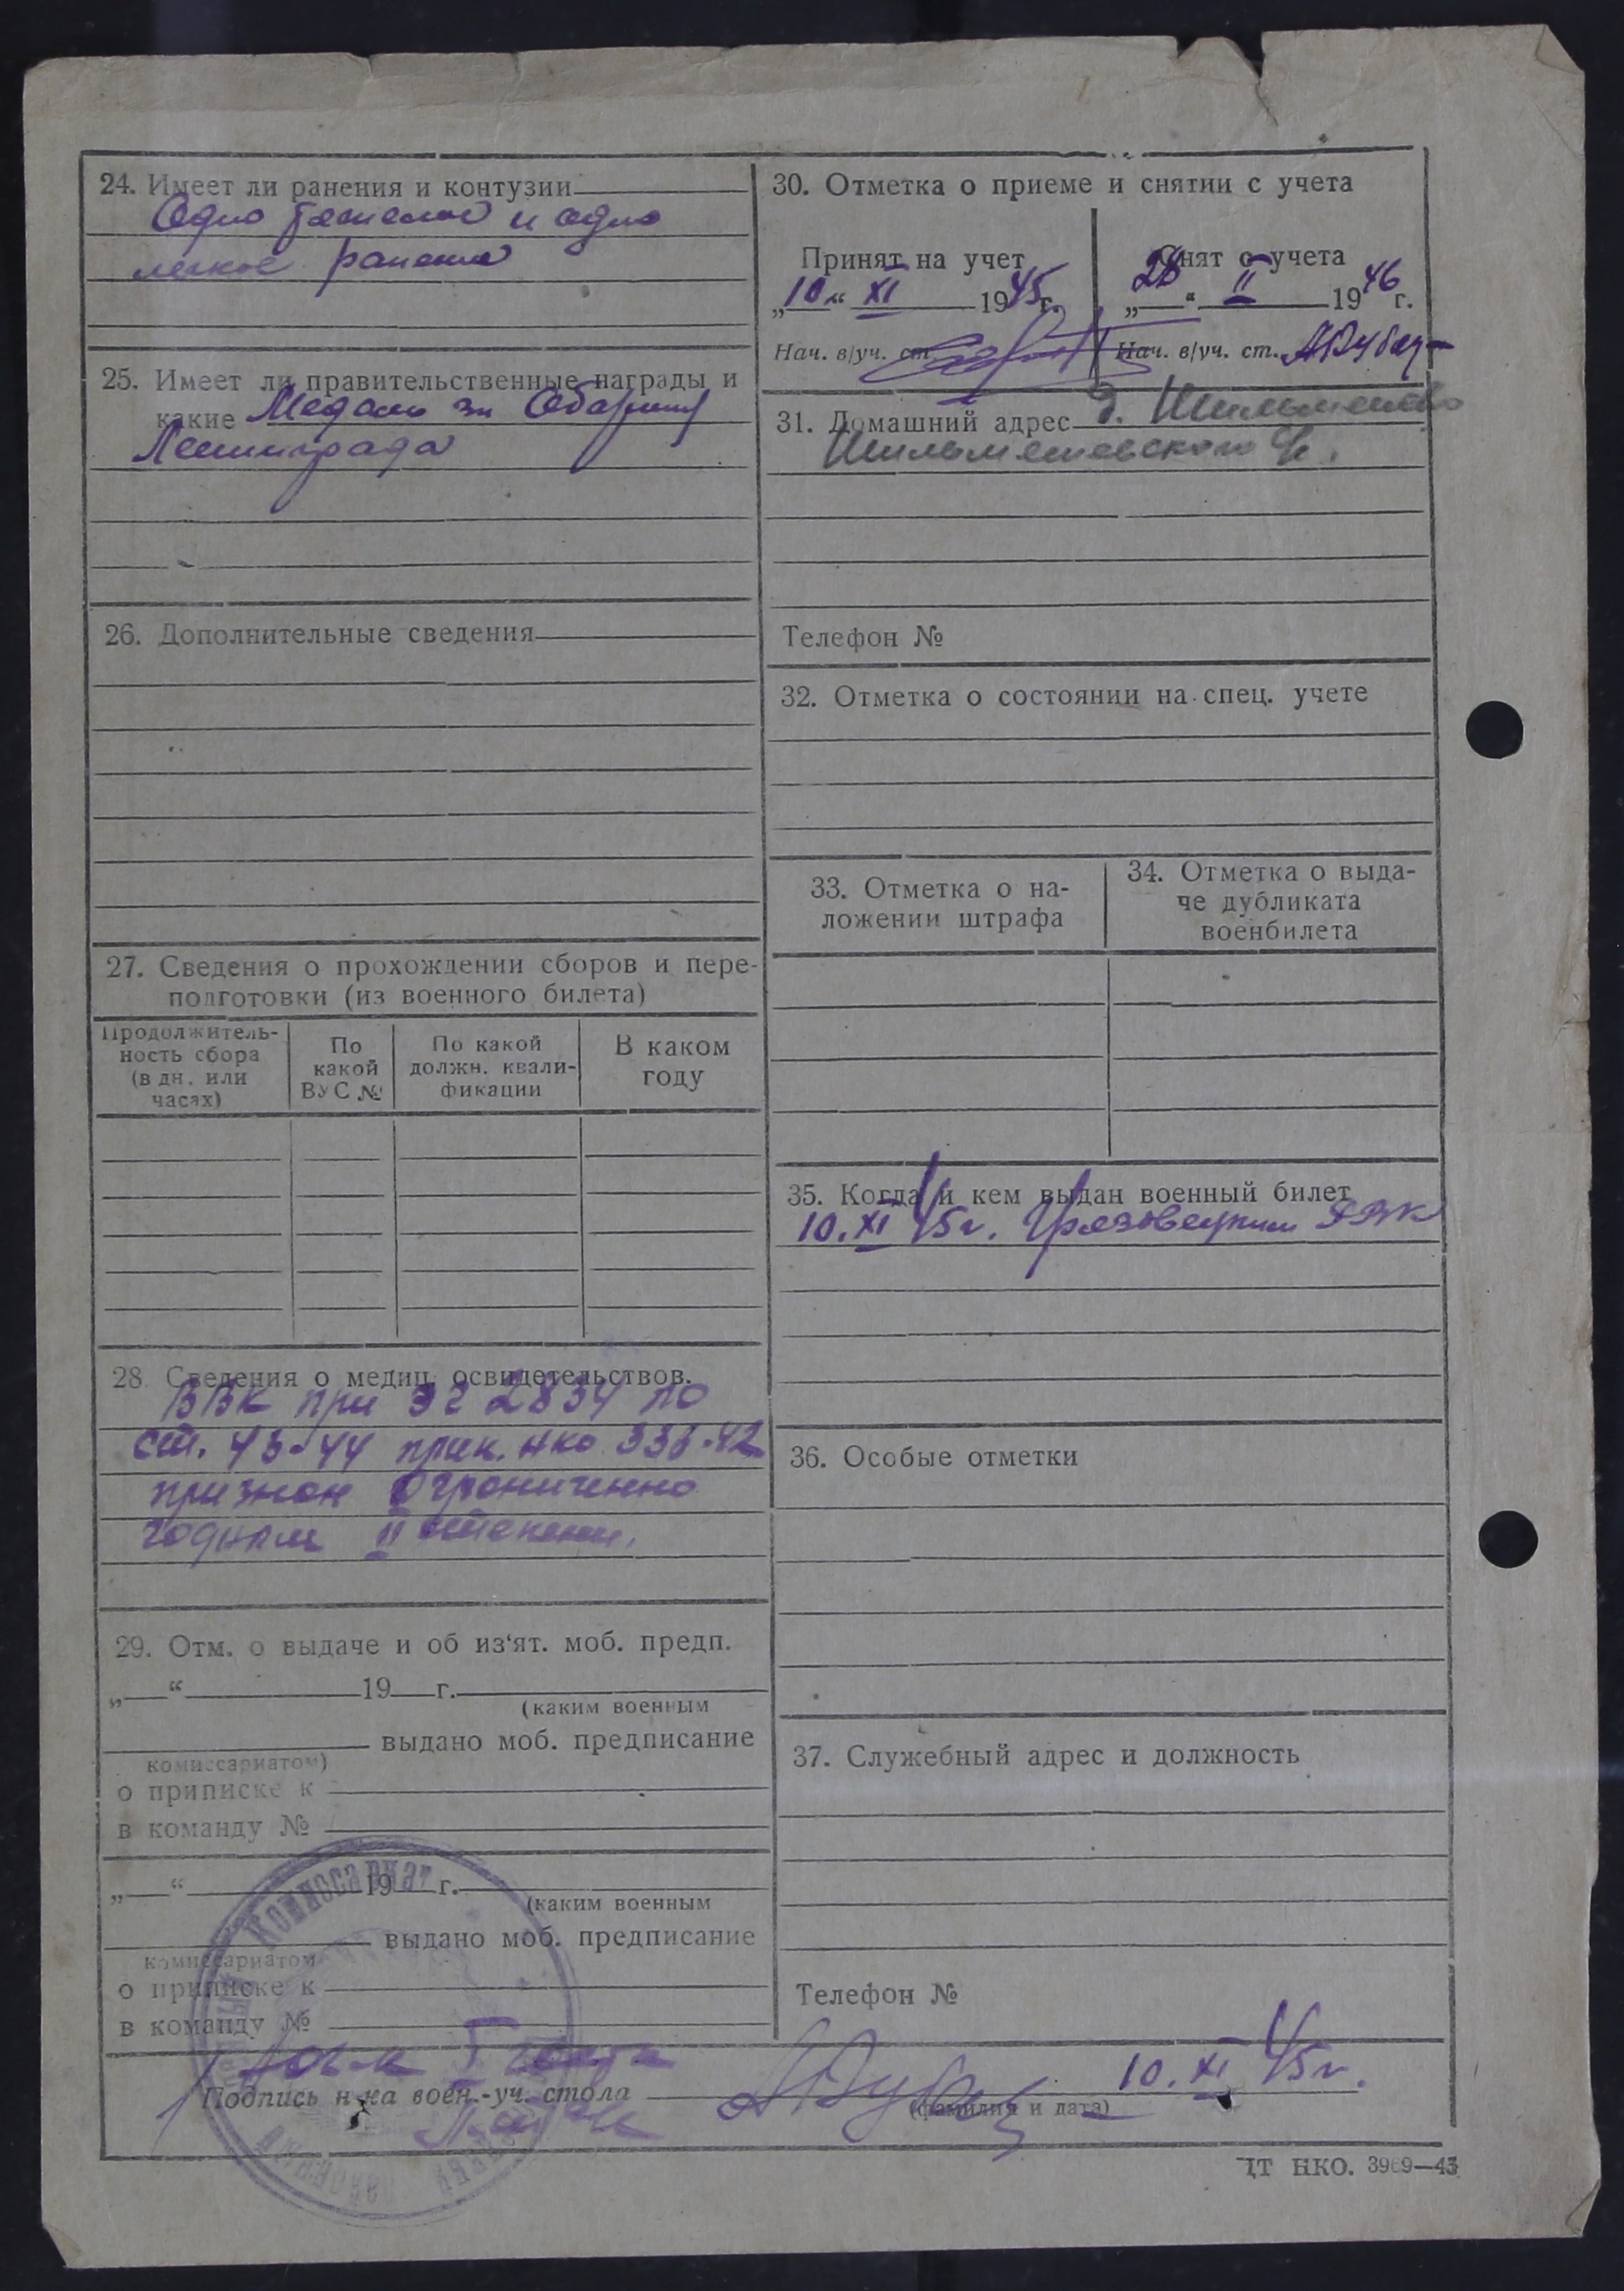 24. Имеет ли ранения и контузии
Одно тяжелое и одно
легкое ранение
25. Имеет ли правительственные награды и
какие Медаль за Оборону
Ленинграда
26. Дополнительные сведения
27. Сведения о прохождении сборов и пере-
подготовки (из военного билета)
Продолжитель-
ность сбора
(в дн. или
часах)
По
какой
ВУС №
По какой
должн. квали-
фикации
В каком
году
28. Сведения о медиц. освидетельствов.
ВВК при ЭГ 2834 по
ст. 43-44 прик. НКО 336-42
признан ограниченно
годным II степени.
29. Отм. о выдаче и об из‘ят. моб. предп.
„ “ 19 г.
(каким военным
выдано моб. предписание
комиссариатом)
о приписке к
в команду №
„ “ 19 г.
(каким военным
выдано моб. предписание
комиссариатом
о приписке к
в команду №
30. Отметка о приеме и снятии с учета
Принят на учет
„10“ XI 1945 г.
Нач. в/уч. ст.
Снят с учета
„28“ II 1946 г.
Нач. в/уч. ст.
31. Домашний адрес д.
Телефон №
32. Отметка о состоянии на спец. учете
33. Отметка о на-
ложении штрафа
34. Отметка о выда-
че дубликата
военбилета
35. Когда и кем выдан военный билет
10.XI 45г. Грязовецким РВК
36. Особые отметки
37. Служебный адрес и должность
Телефон №
Подпись н-ка воен.-уч. стола 10.XI 45г.
(фамилия и дата)
Комиссариат
ЦТ НКО. 3969—43